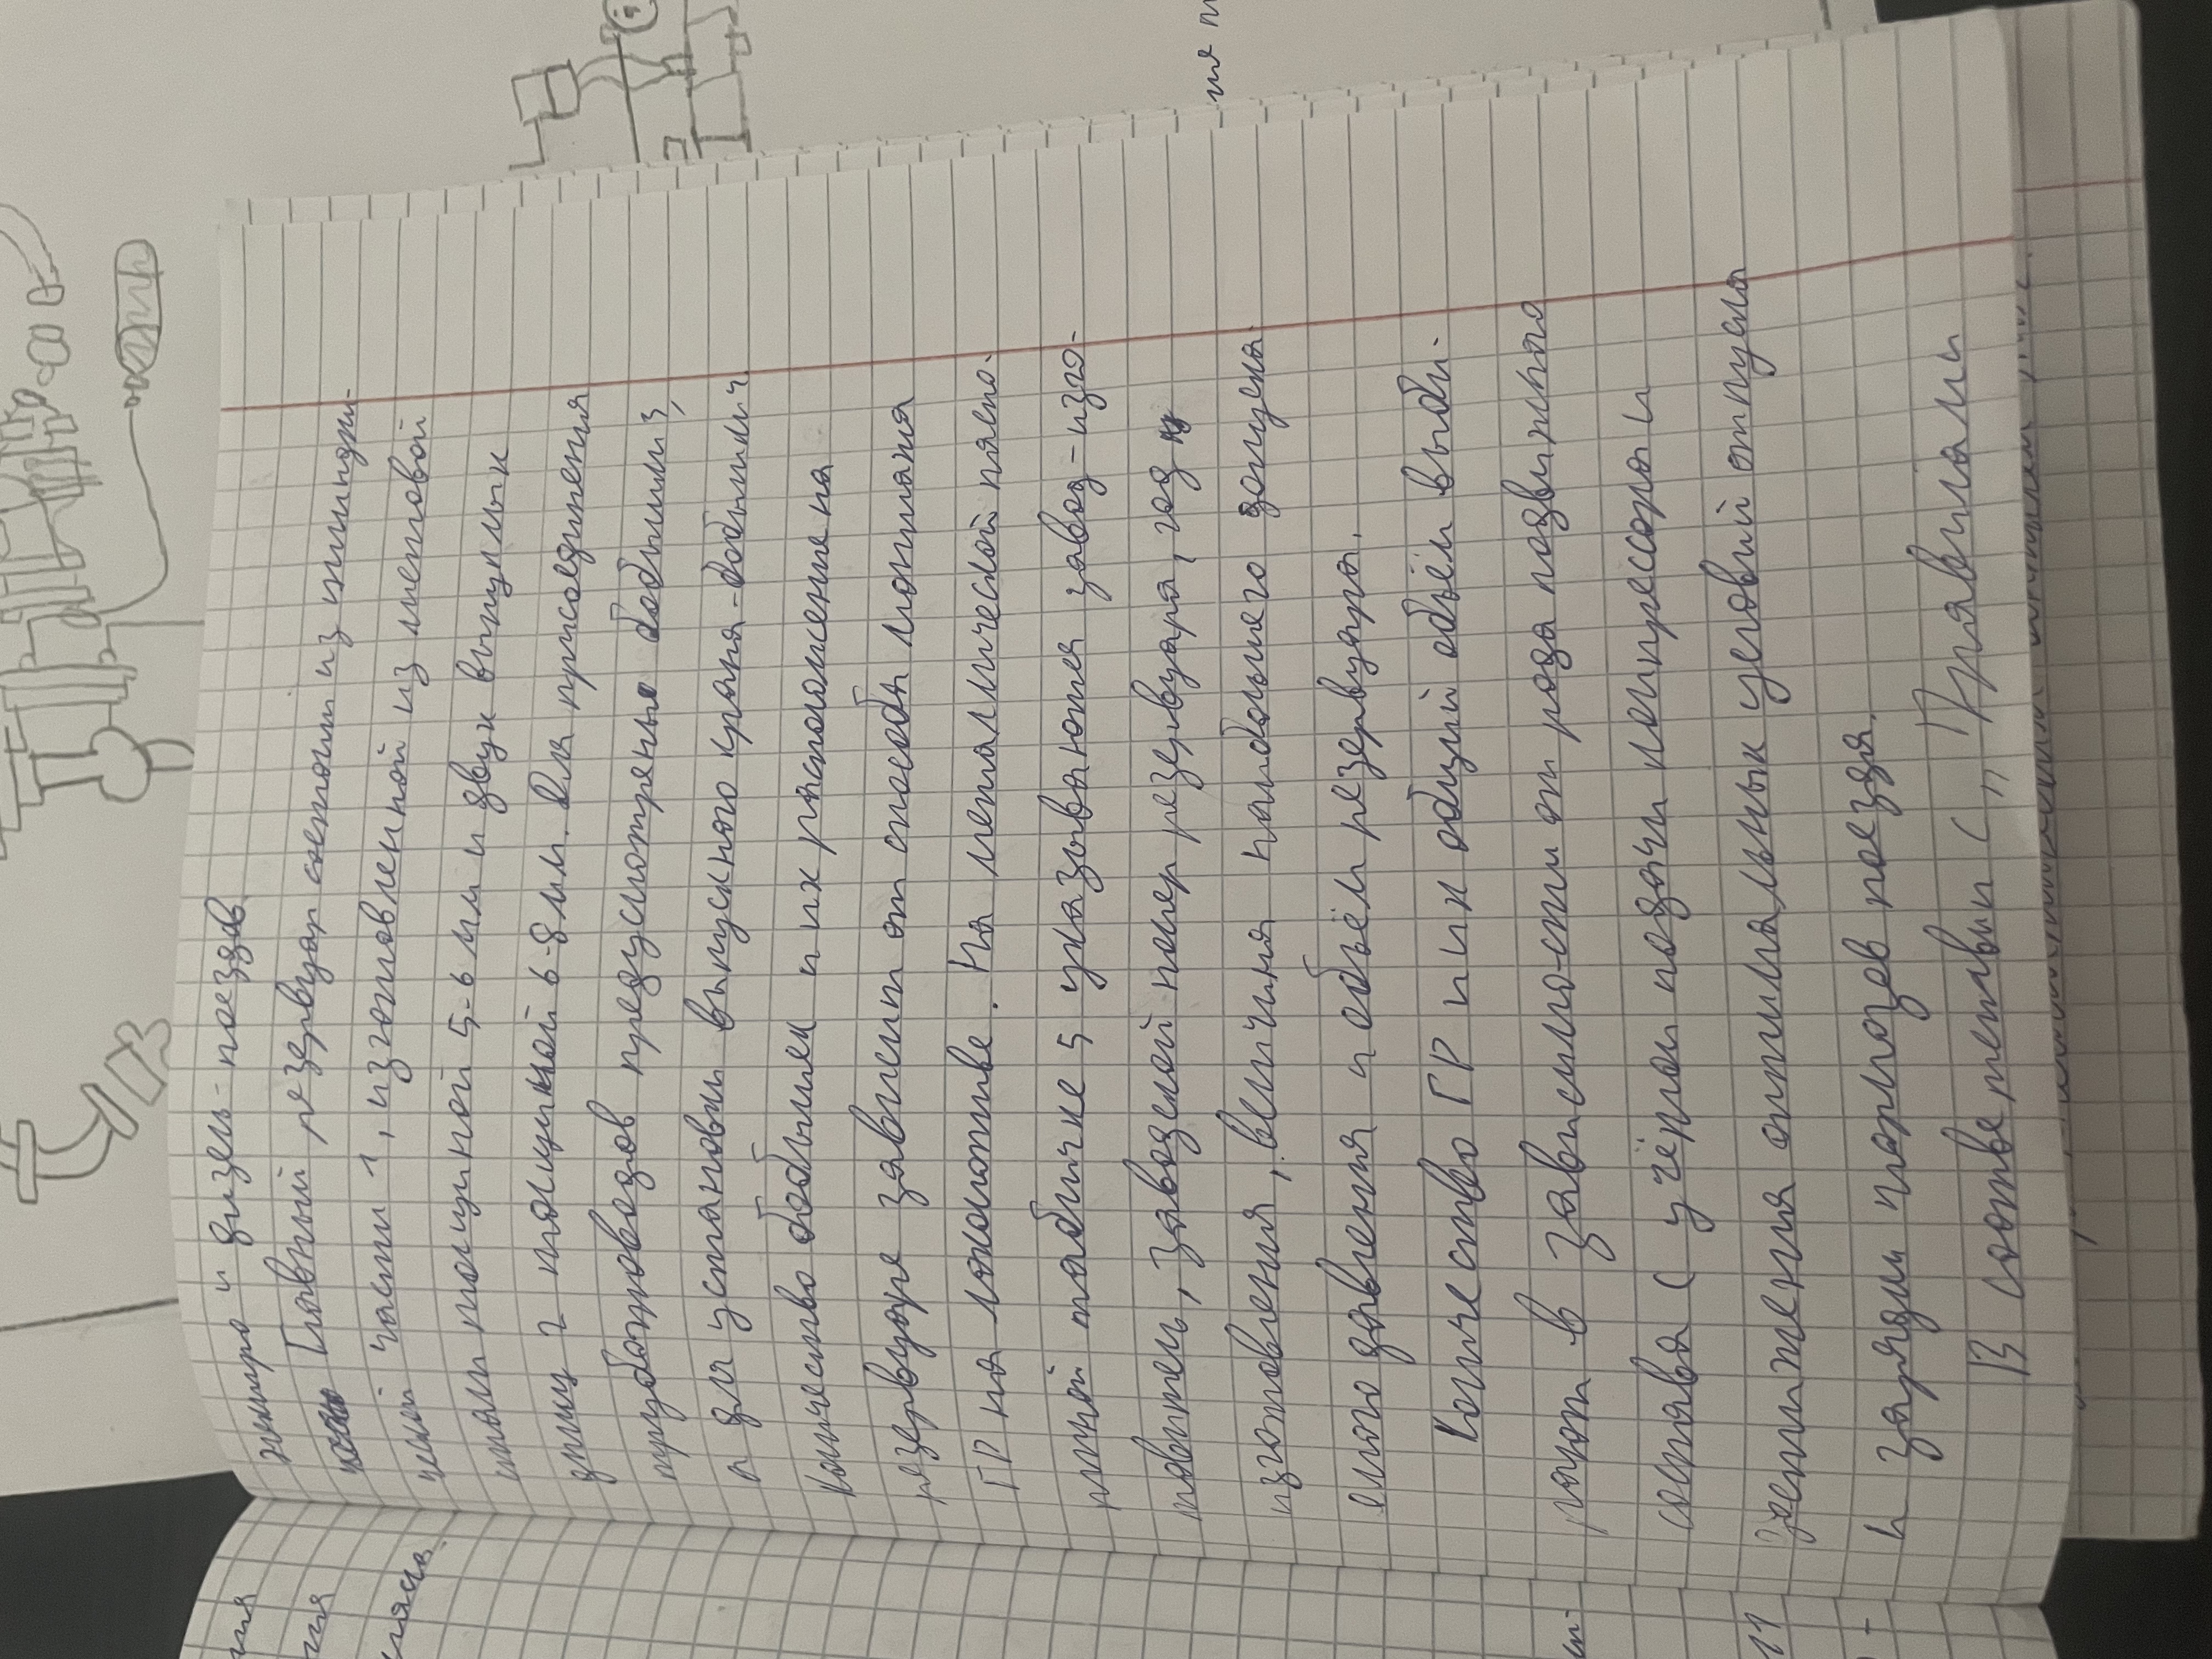 электро и дизель-поездов
Главный резервуар состоит из цилиндри-
ческой части 1, изготовленной из листовой
стали толщиной 5-6 мм и двух выпуклых
днищ 2 толщиной 6-8 мм. Для присоединения
трубопроводов предусмотрены бобышки 3,
а для установки выпускного крана - бобышки 4.
Количество бобышек и их расположение на
резервуаре зависит от способа монтажа
ГР на локомотиве. На металлической паспо-
ртной табличке 5 указываются завод-изго-
товитель, заводской номер резервуара, год
изготовления, величина наибольшего допуска-
емого давления и объём резервуара.
Количество ГР и их общий объём выби-
рают в зависимости от рода подвижного
состава с учётом подачи компрессора и
достижения оптимальных условий отпуска
и зарядки тормозов поезда.
В соответствии с " Правилами
ния
ния